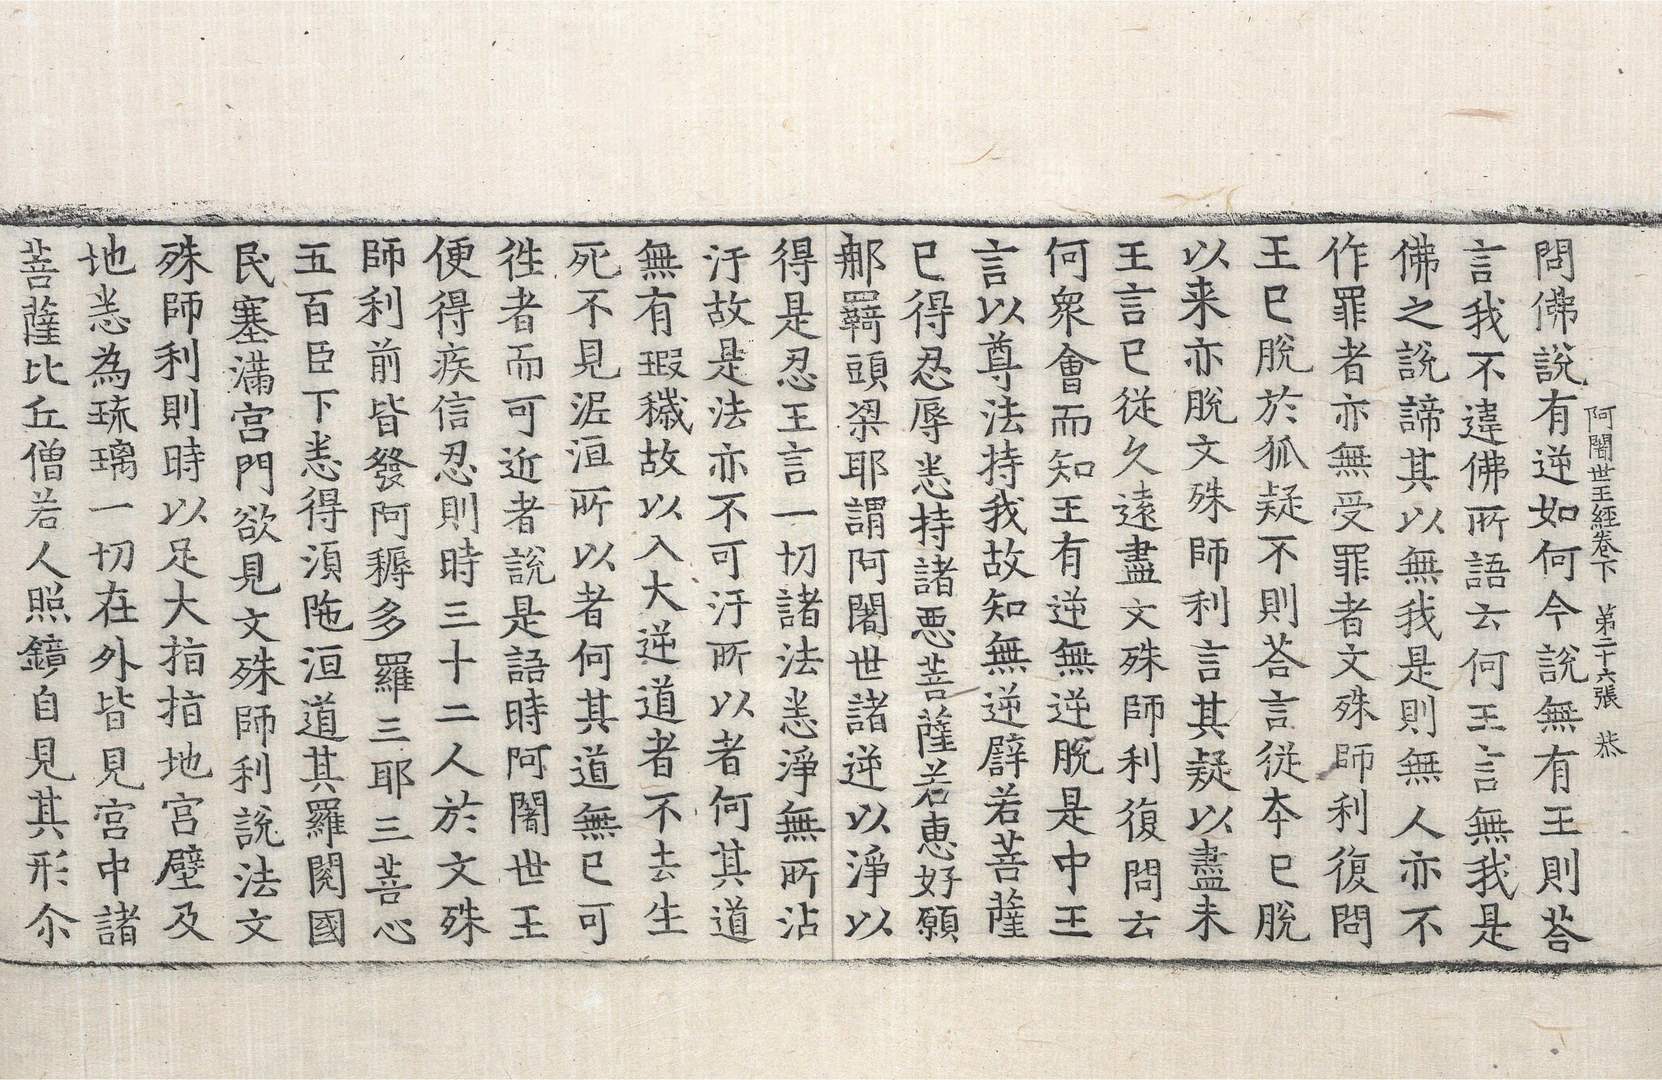 阿闍世王經卷下 第二十六張 㳟
問佛說有逆如何今說無有王則荅
言我不違佛所語云何王言無我是
佛之說諦其以無我是則無人亦不
作罪者亦無受罪者文殊師利復問
王已脫於狐疑不則荅言從本已脫
以来亦脫文殊師利言其疑以盡未
王言已從久遠盡文殊師利復問云
何衆會而知王有逆無逆脫是中王
言以尊法持我故知無逆辟若菩薩
已得忍辱恙持諸悪菩薩若恵好願
郍羇頭梁耶謂阿闍世諸逆以淨以
得是忍王言一切諸法恙淨無所沾
汙故是法亦不可汙所以者何其道
無有瑕穢故以入大逆道者不去生
死不見泥洹所以者何其道無已可
徃者而可近者說是語時阿闍世王
便得疾信忍則時三十二人於文殊
師利前皆發阿耨多羅三耶三菩心
五百臣下恙得湏陁洹道其羅閱國
民塞滿宮門欲見文殊師利說法文
殊師利則時以足大指指地宮壁及
地恙為琉璃一切在外皆見宮中諸
菩薩比丘僧若人照鏡自見其形尒